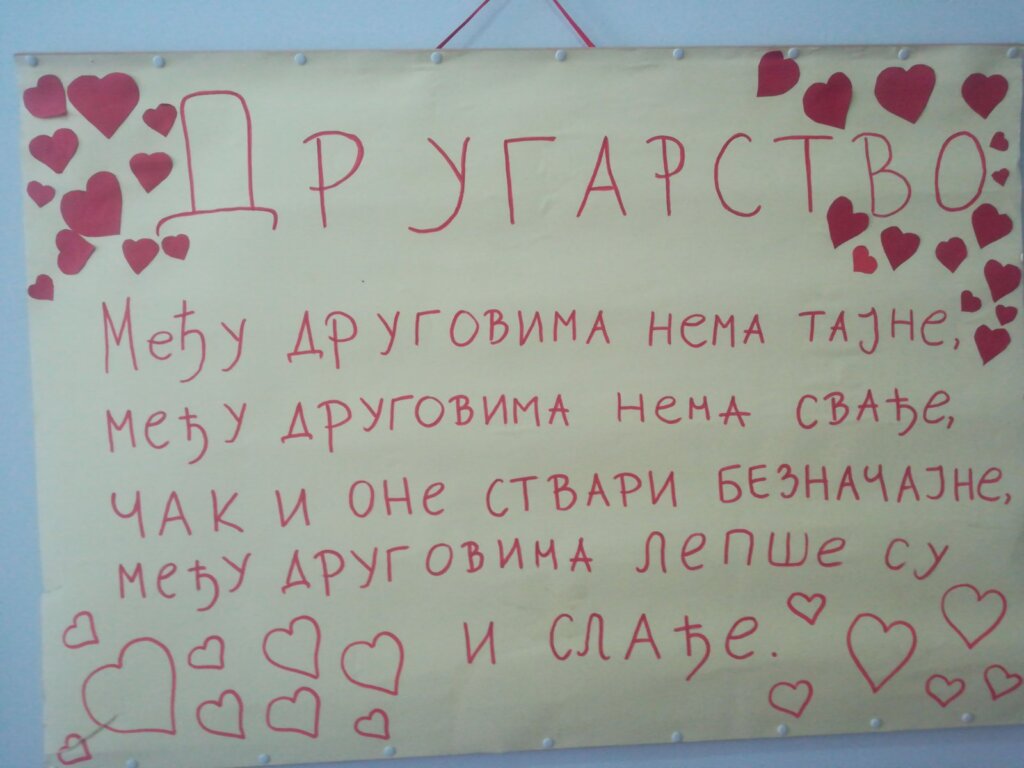 ДРУГАРСТВО
Међу друговима нема тајне,
међу друговима нема свађе,
чак и оне ствари безначајне,
међу друговима лепше су
и слађе.